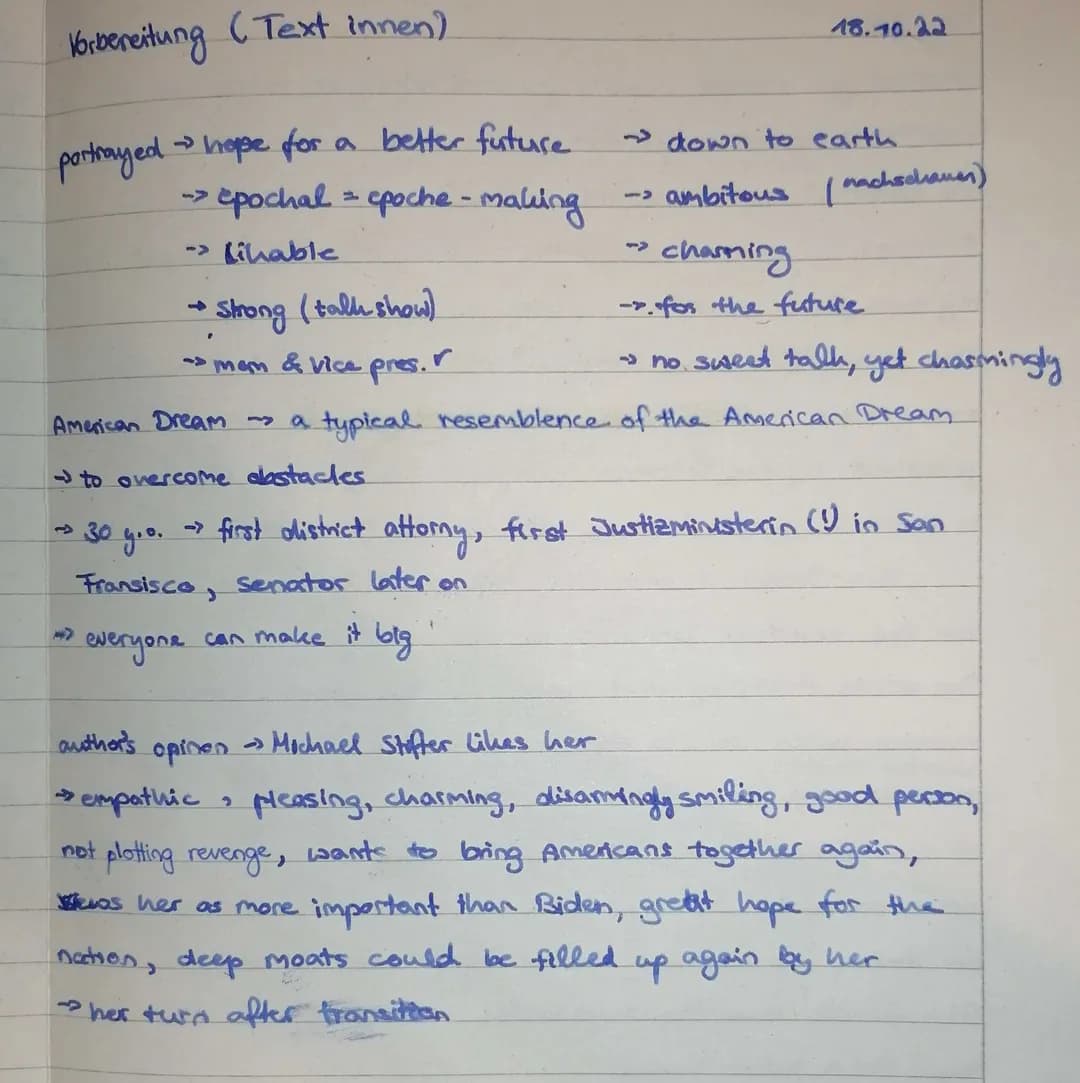 Vorbereitung (Text innen) 18.10.22
portrayed → hope for a better future → down to earth
→ epochal = epoche-making → ambitous (nachschauen)
→ likable → charming
→ strong (talk show) → for the future
→ mom & vice pres. → no sweet talk, yet charmingly
American Dream → a typical resemblence of the American Dream
→ to overcome obstacles
→ 30 y.o. → first district attorny, first Justizministerin (!) in San
Fransisco, senator later on
→ everyone can make it big
author's opinon → Michael Stifter likes her
→ empathic, pleasing, charming, disarmingly smiling, good person,
not plotting revenge, wants to bring Americans together again,
her as more important than Biden, great hope for the
nation, deep moats could be filled up again by her
→ her turn after transition